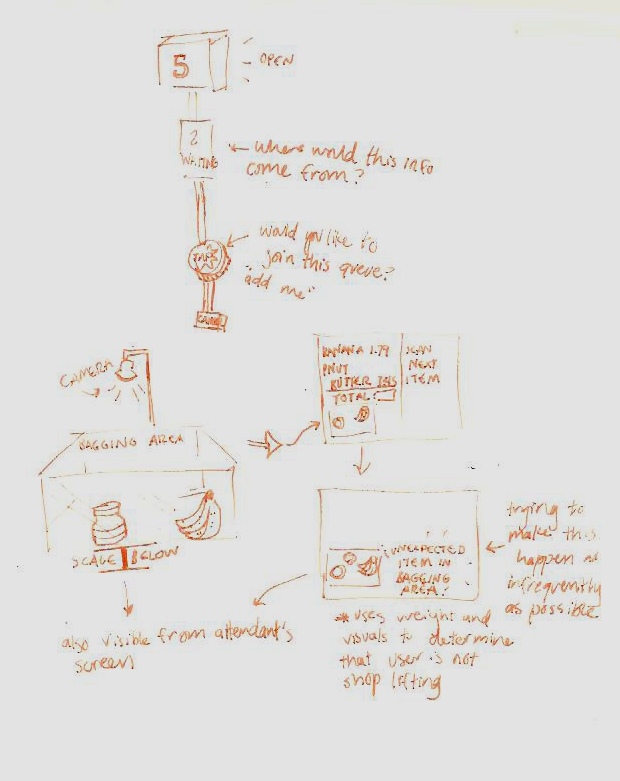 5
OPEN
2
WAITING
← where would this info
come from?
would you like to
join this queue?
"add me"
CAMERA
BAGGING AREA
SCALE BELOW
BANANA 1.79
PNUT
BUTTER
TOTAL:
SCAN
NEXT
ITEM
! UNEXPECTED
ITEM IN
BAGGING
AREA!
trying to
make this
happen as
infrequently
as possible
* uses weight and
visuals to determine
that user is not
shop lifting
also visible from attendant's
screen